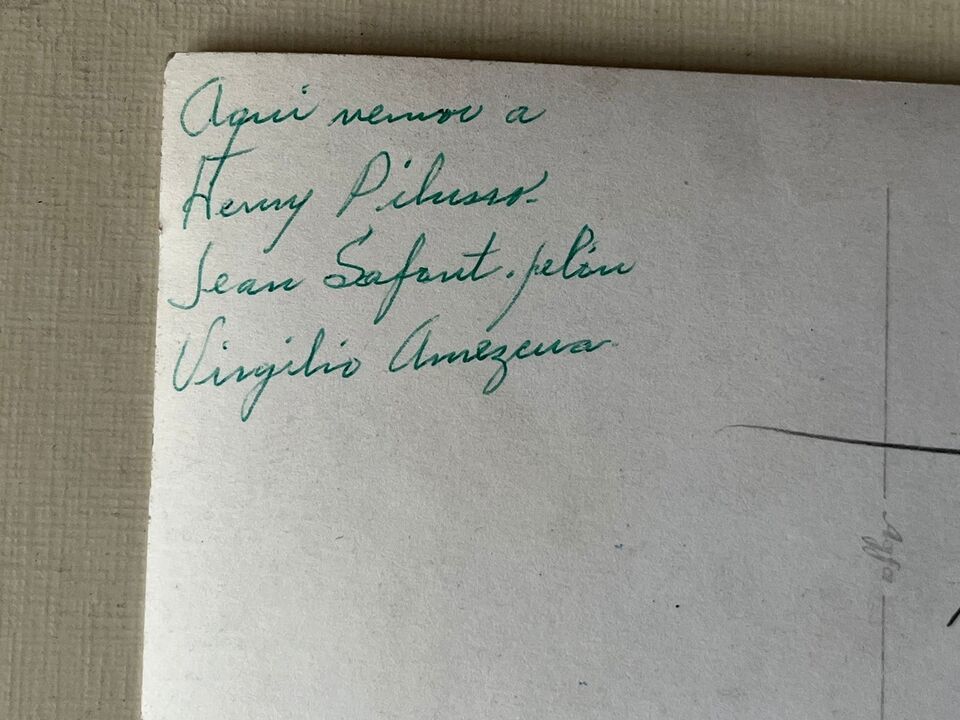 Aqui vemos a
Henry Pilusso.
Jean Safont. pelón
Virgilio Amezcua
Agfa